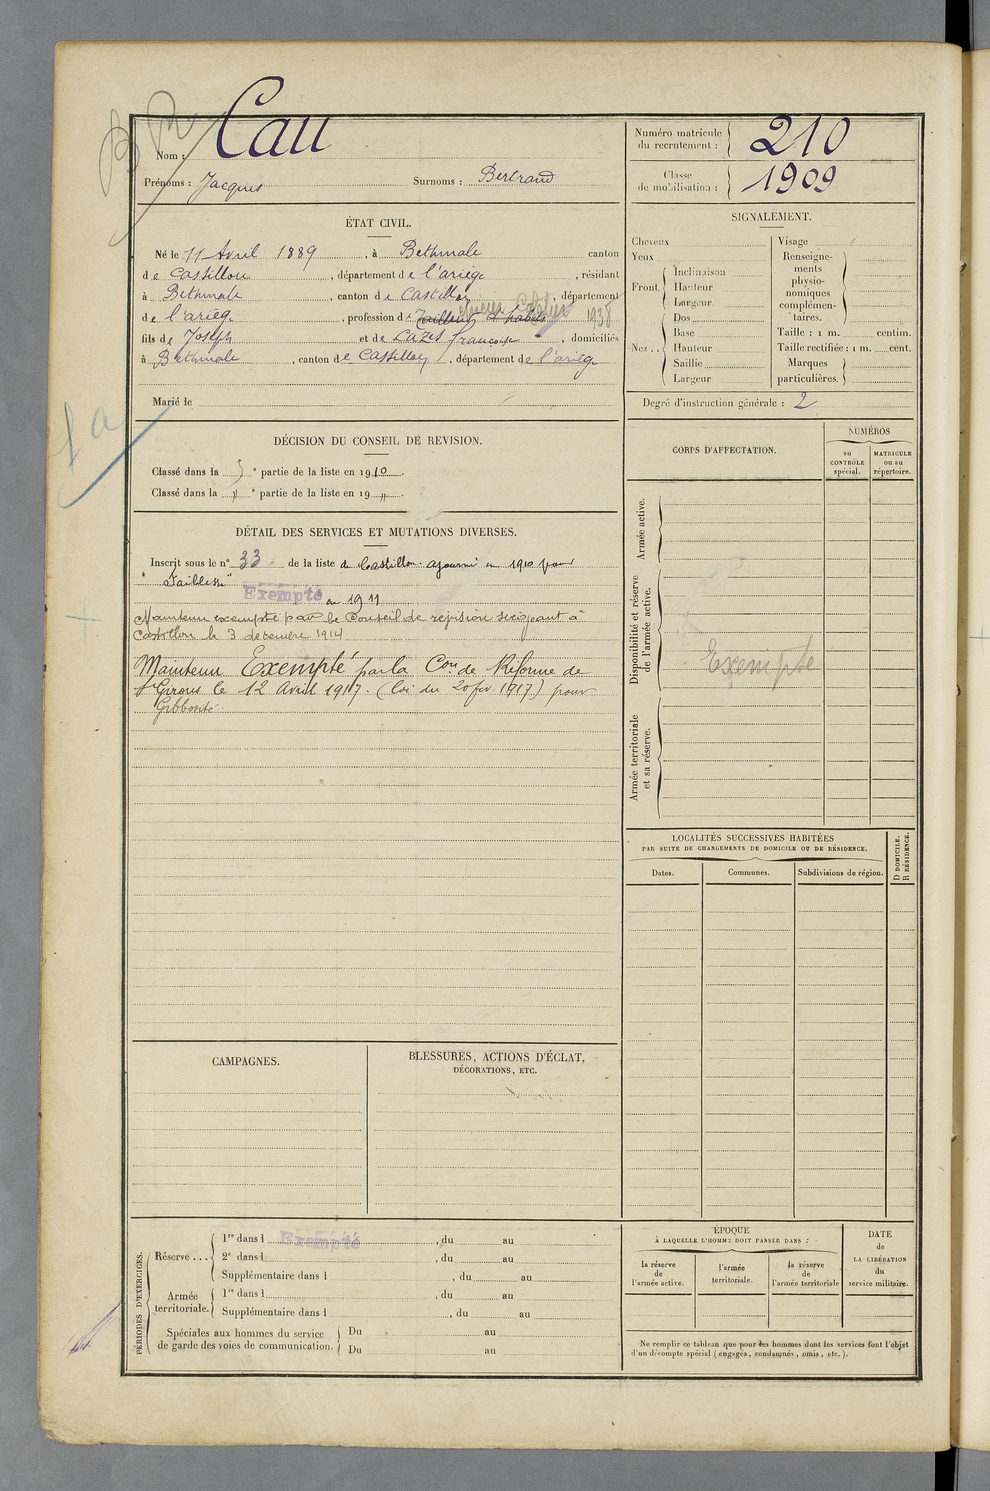 Nom : Cau
Prénoms : Jacques Surnoms : Bertrand
Numéro matricule du recrutement : 210
Classe de mobilisation : 1909
ÉTAT CIVIL.
Né le 11 Avril 1889, à Bethmale canton
de Castillon, département de l'ariège, résidant
à Bethmale, canton de Castillon, département
de l'ariège, profession de Tailleur d'habits 1938
fils de Joseph et de Cazes françoise, domiciliés
à Bethmale, canton de Castillon, département de l'ariège
Marié le
SIGNALEMENT.
Cheveux
Yeux
Front. Inclinaison
Hauteur
Largeur
Nez.. Dos
Base
Hauteur
Saillie
Largeur
Visage
Renseigne-
ments
physio-
nomiques
complémen-
taires.
Taille : 1 m. centim.
Taille rectifiée : 1 m. cent.
Marques
particulières.
Degré d'instruction générale : 2
DÉCISION DU CONSEIL DE REVISION.
Classé dans la 5 e partie de la liste en 1910.
Classé dans la " e partie de la liste en 19 ".
DÉTAIL DES SERVICES ET MUTATIONS DIVERSES.
Inscrit sous le n° 33 de la liste de Castillon. ajourné en 1910 pour
"Faiblesse"
Exempté en 1911
Maintenu exempté par le Conseil de révision siégeant à
Castillon le 3 décembre 1914
Maintenu Exempté par la Con de Réforme de
St Girons le 12 Avril 1917. (loi du 20 fév. 1917) pour
Gibbosité.
CORPS D'AFFECTATION.
NUMÉROS
au
CONTRÔLE
spécial.
MATRICULE
ou au
répertoire.
Armée active.
Disponibilité et réserve
de l'armée active.
Exempté
Armée territoriale
et sa réserve.
LOCALITÉS SUCCESSIVES HABITÉES
PAR SUITE DE CHANGEMENTS DE DOMICILE OU DE RÉSIDENCE.
D DOMICILE.
R RÉSIDENCE.
Dates. Communes. Subdivisions de région.
CAMPAGNES.
BLESSURES, ACTIONS D'ÉCLAT,
DÉCORATIONS, ETC.
PÉRIODES D'EXERCICES.
Réserve... 1re dans l Exempté, du au
2e dans l, du au
Supplémentaire dans l, du au
Armée
territoriale. 1re dans l, du au
Supplémentaire dans l, du au
Spéciales aux hommes du service
de garde des voies de communication. Du au
Du au
ÉPOQUE
À LAQUELLE L'HOMME DOIT PASSER DANS :
la réserve
de
l'armée active.
l'armée
territoriale.
la réserve
de
l'armée territoriale
DATE
de
LA LIBÉRATION
du
service militaire.
Ne remplir ce tableau que pour les hommes dont les services font l'objet
d'un décompte spécial (engagés, condamnés, omis, etc.).